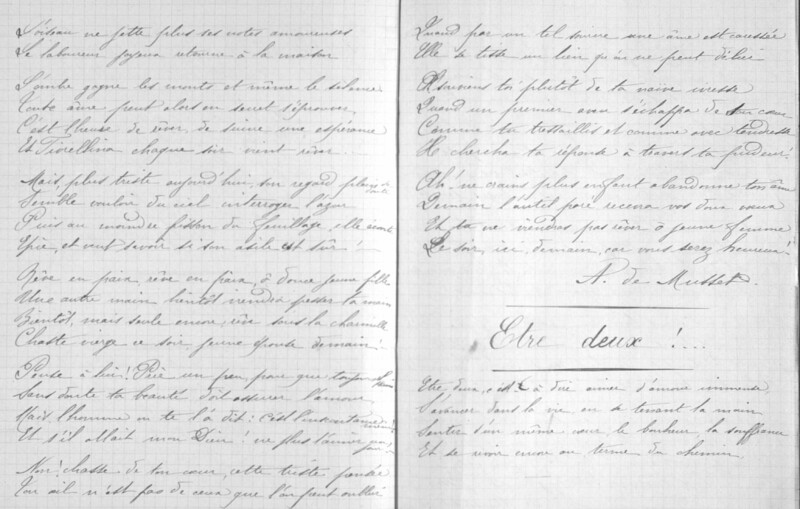 L'oiseau ne jette plus ses notes amoureuses
Le laboureur joyeux retourne à la maison
L'ombre gagne les monts et même le silence
Toute âme peut alors en secret s'épancher
C'est l'heure de rêver, de suivre une espérance
Et Fiorellina chaque soir vient rêver
Mais, plus triste aujourd'hui, son regard plein de
Semble vouloir du ciel interroger l'azur
Puis au moindre frisson du feuillage, elle écoute
Épie, et veut savoir si son asile est sûr !
Rêve en paix, rêve en paix, ô douce jeune fille
Une autre main bientôt viendra presser ta main
Bientôt, mais seule encore, rêve sous la charmille
Chaste vierge ce soir jeune épouse demain !
Pense à lui ! Prie un peu, pour que toujours
Sans doute ta beauté doit assurer l'amour
Mais l'homme on te l'a dit : c'est l'inconstance
Et s'il allait mon Dieu ! ne plus t'aimer un jour !
Non ! chasse de ton cœur, cette triste pensée
Ton œil n'est pas de ceux que l'on peut oublier
Quand par un tel sourire une âme est caressée
Elle se tisse un lien qu'on ne peut délier
Souviens toi plutôt de ta naïve ivresse
Quand un premier aveu s'échappa de ton cœur
Comme tu tressaillis et comme avec tendresse
Il chercha ta réponse à travers ta pudeur !
Ah ! ne crains plus enfant abandonne ton âme
Demain l'autel paré recevra vos doux vœux
Et tu ne viendras pas rêver ô jeune femme
Le soir, ici, demain, car vous serez heureux !
A. de Musset.
Etre deux !...
Etre deux, c'est à dire aimer d'amour immense
S'avancer dans la vie en se tenant la main
Sentir d'un même cœur le bonheur la souffrance
Et se voir encore au terme du chemin.